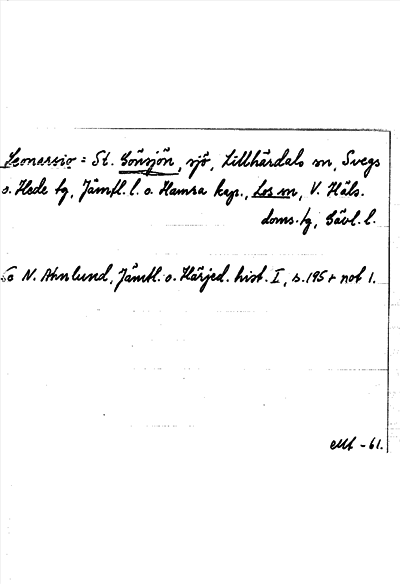 Leonarsio = St. Gönsjön, sjö, Lillhärdals sn, Svegs
o. Hede tg, Jämtl. l. o. Hamra kap., Los sn, V. Häls.
doms. tg, Gävl. l.
Så N. Ahnlund, Jämtl. o. Härjed. hist. I, s. 195 + not 1.
-61.